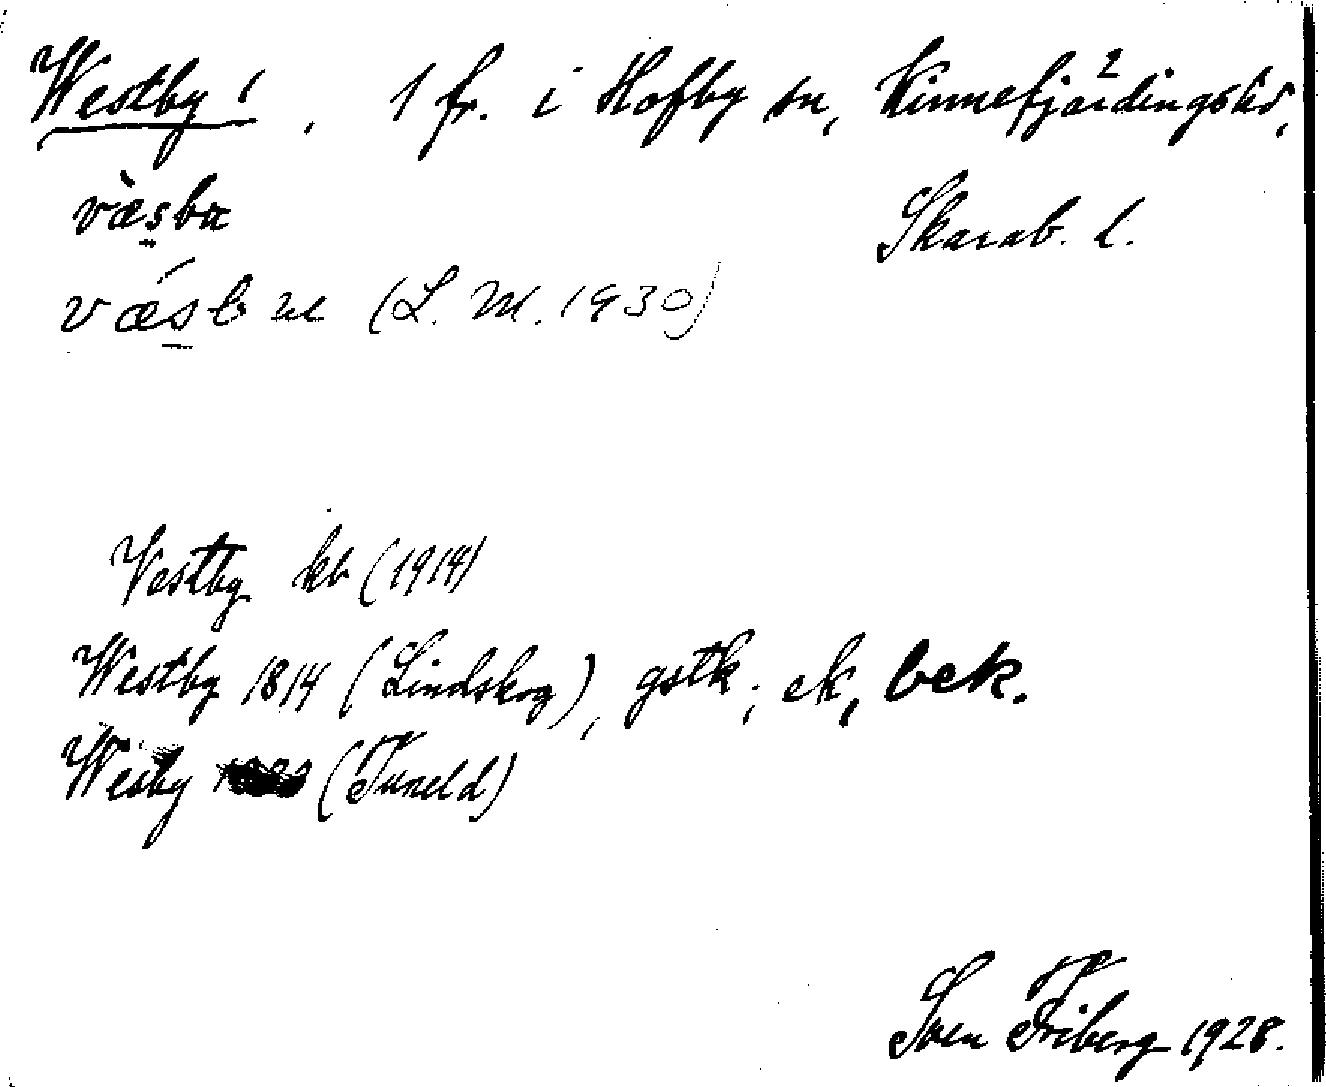 Westby !, 1 fr. i Hofby sn, Kinnefjärdings hd,
Skarab. l.
væ̀sba
(L. M. 1930)
Vestby kb (1914)
Westby 1814 (Lindskog), gstk; ek, bek.
Wesby (Tuneld)
Sven Friberg 1928.